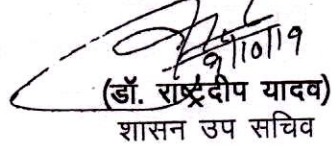 9/10/19
(डॉ. राष्ट्रदीप यादव)
शासन उप सचिव